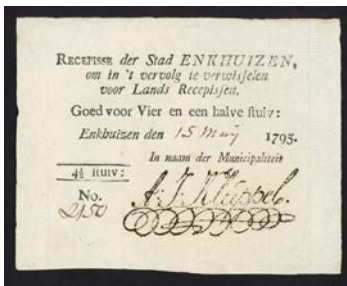 RECEPISSE der Stad ENKHUIZEN,
om in 't vervolg te verwisselen
voor Lands Recepissen.
Goed voor Vier en een halve stuiv:
Enkhuizen den 15 Meij 1795.
In naam der Municipaliteit
4½ stuiv:
No. A. J. Kluppel.
2150